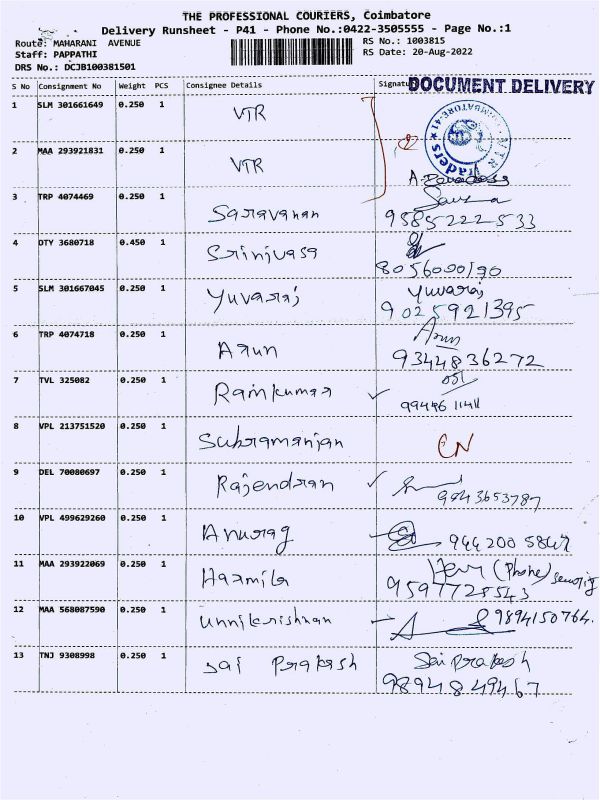 THE PROFESSIONAL COURIERS, Coimbatore
Delivery Runsheet - P41 - Phone No.:0422-3505555 - Page No.:1
Route: MAHARANI AVENUE
RS No.: 1003815
Staff: PAPPATHI
RS Date: 20-Aug-2022
DRS No.: DCJB100381501
S No Consignment No Weight PCS Consignee Details Signatu
DOCUMENT DELIVERY
1 SLM 301661649 0.250 1 VTR
COIMBATORE-41 ★ VTR
2 MAA 293921831 0.250 1 VTR
3 TRP 4074469 0.250 1 Saravanan
9585222533
4 DTY 3680718 0.450 1 Srinivasa
8056000190
5 SLM 301667045 0.250 1 Yuvaraj Yuvaraj
9025921395
6 TRP 4074718 0.250 1 Arun Arun
9344836272
7 TVL 325082 0.250 1 Ramkumar ✓
8 VPL 213751520 0.250 1 Subramanian CN
9 DEL 70080697 0.250 1 Rajendran ✓
9943653787
10 VPL 499629260 0.250 1 Anurag
944200 5847
11 MAA 293922069 0.250 1 Harmila (Phone)
9597728543
12 MAA 568087590 0.250 1 Unnikrishnan 9894150764.
13 TNJ 9308998 0.250 1 Jai Prakash Sai Prakash
9894849467